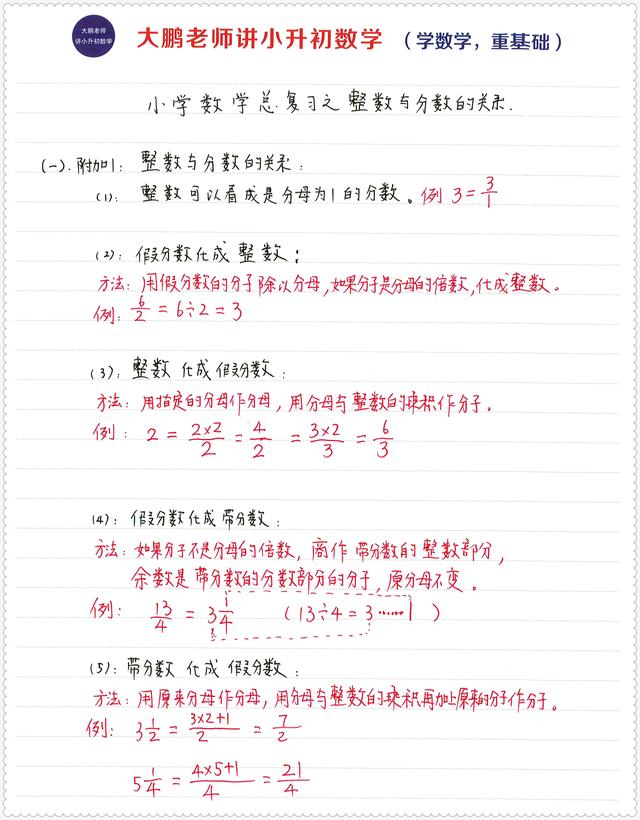 大鹏老师
讲小升初数学
大鹏老师讲小升初数学 (学数学,重基础)
小学数学总复习之整数与分数的关系.
(一).附加1: 整数与分数的关系:
(1): 整数可以看成是分母为1的分数。例 3=3/1
(2): 假分数化成整数:
方法: 用假分数的分子除以分母,如果分子是分母的倍数,化成整数。
例: 6/2=6÷2=3
(3): 整数 化成 假分数:
方法: 用指定的分母作分母, 用分母与整数的乘积作分子.
例: 2=2×2/2=4/2=3×2/3=6/3
(4): 假分数化成带分数:
方法: 如果分子不是分母的倍数, 商作带分数的整数部分,
余数是带分数的分数部分的分子, 原分母不变。
例: 13/4=3 1/4 (13÷4=3……1)
(5): 带分数 化成 假分数:
方法: 用原来分母作分母, 用分母与整数的乘积再加上原来的分子作分子。
例: 3 1/2=3×2+1/2=7/2
5 1/4=4×5+1/4=21/4